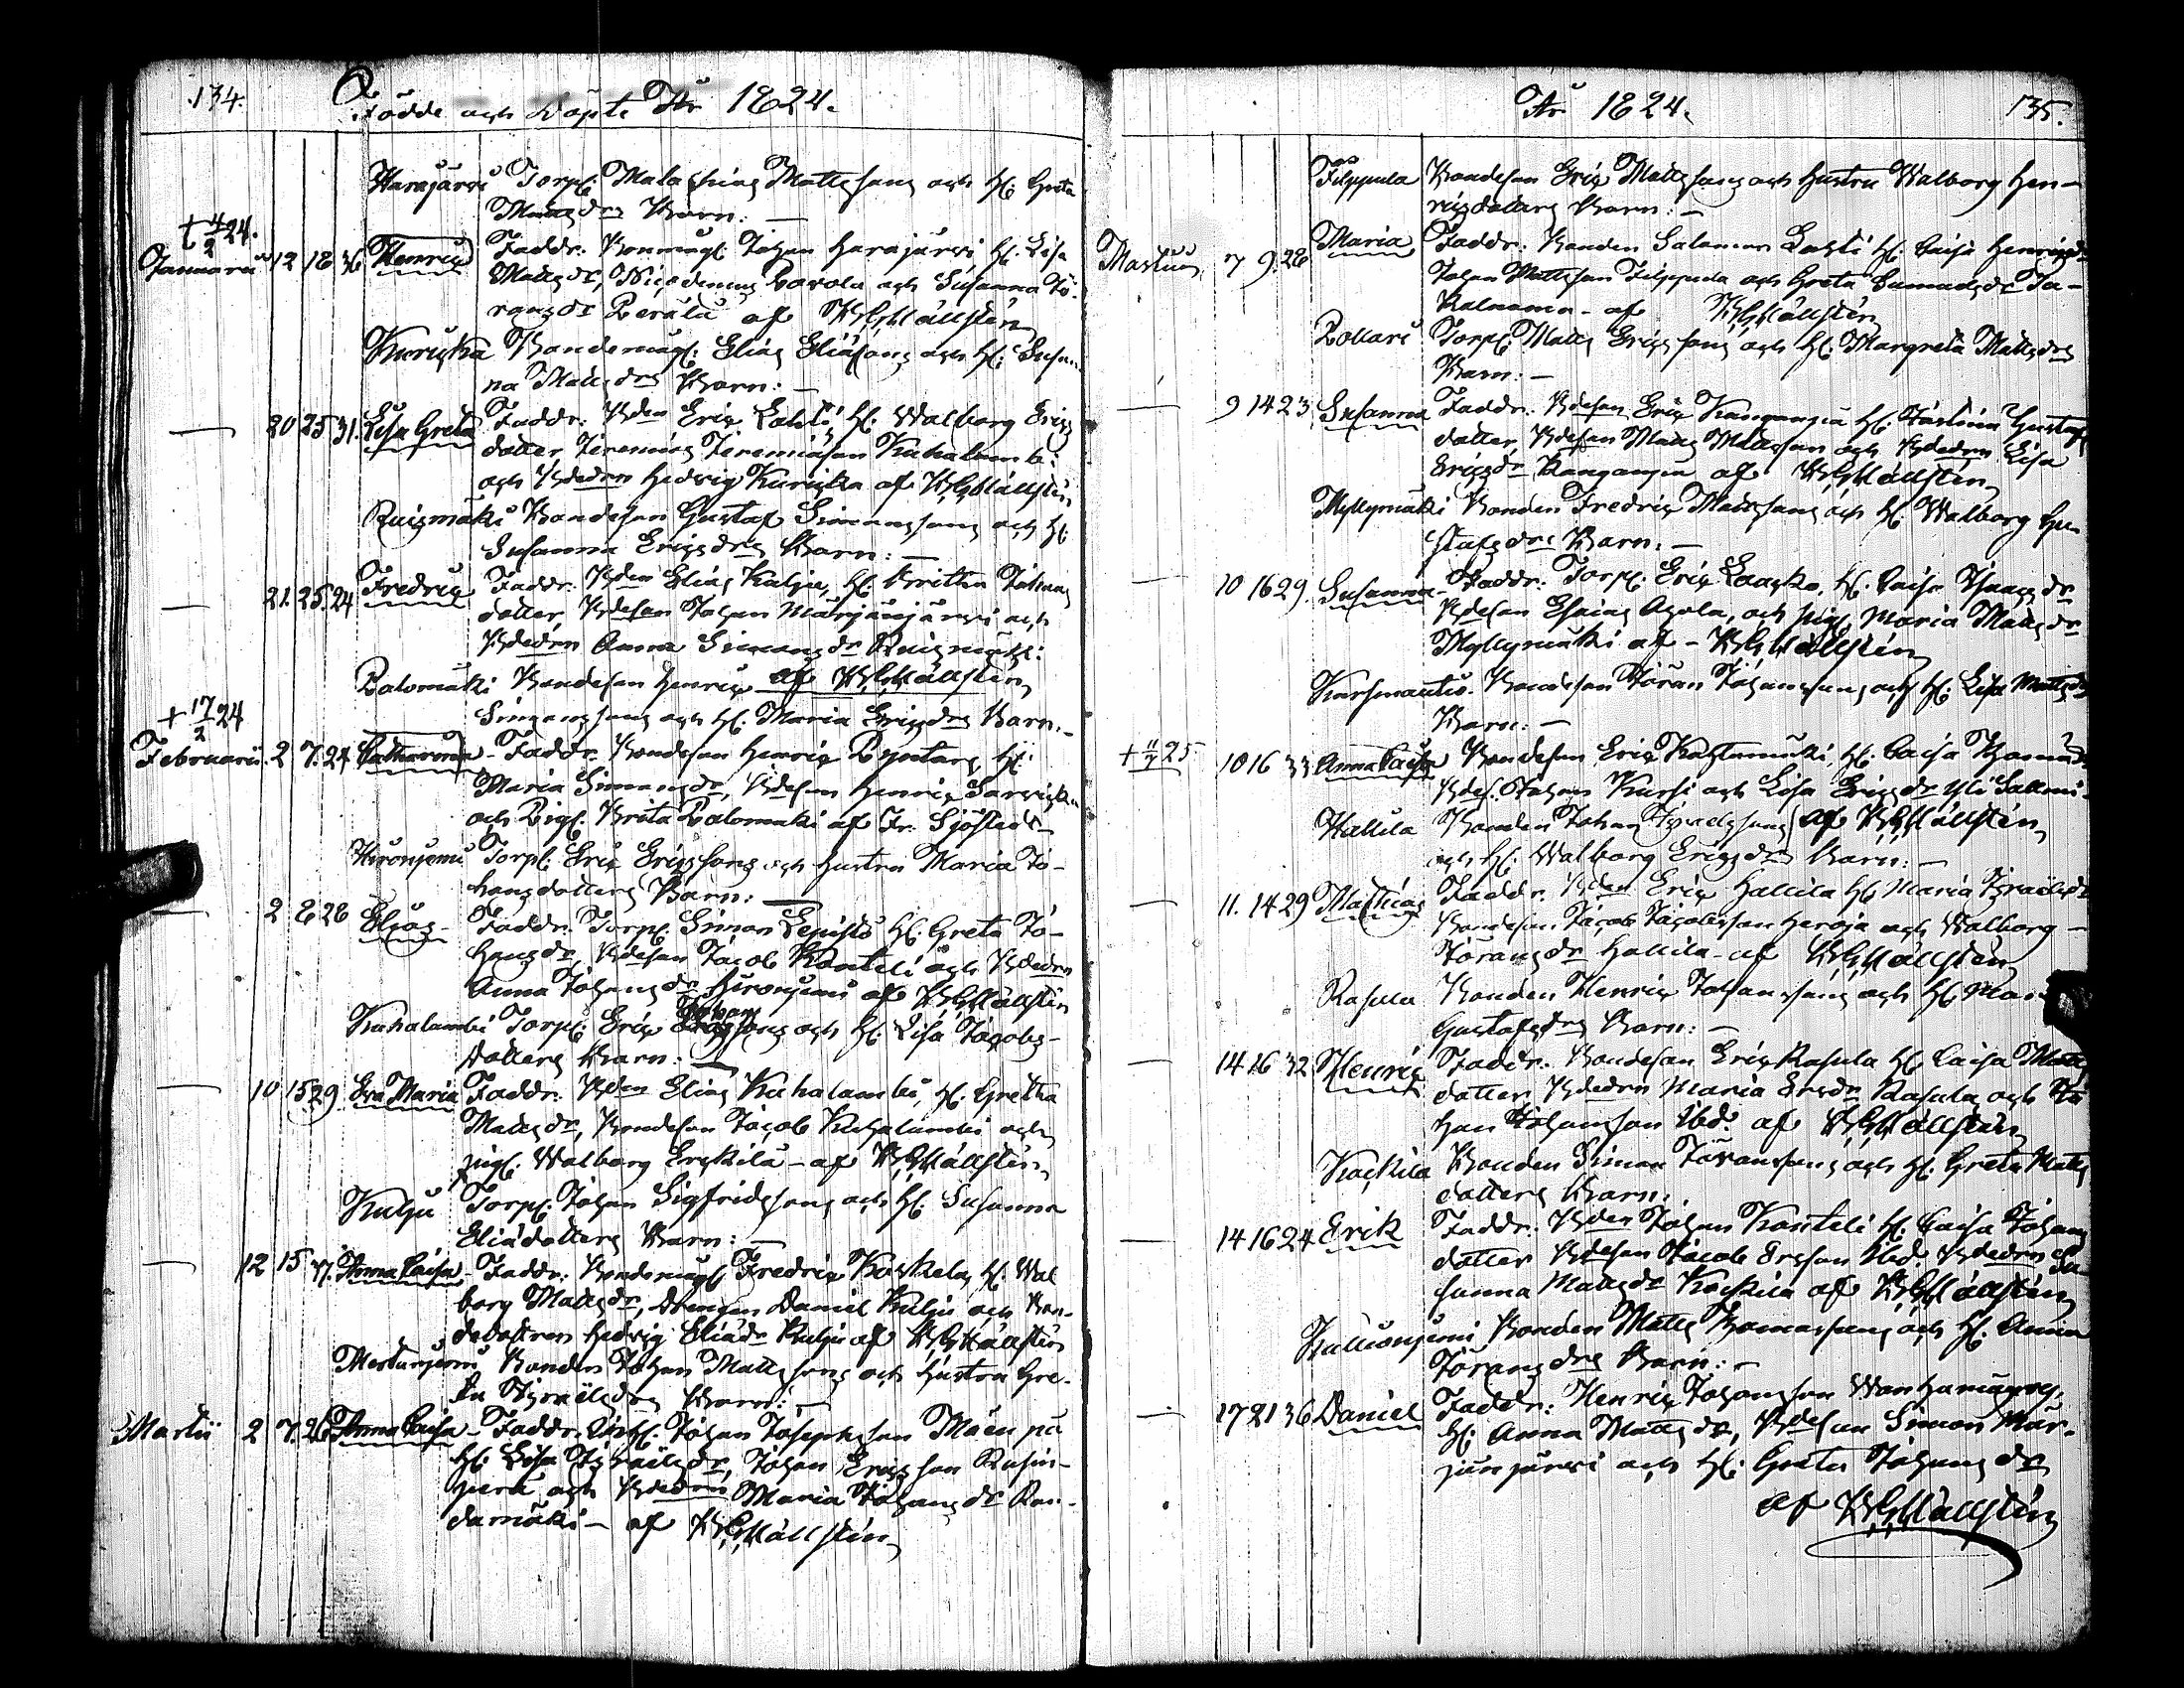 134.
Födde och Döpte År 1824.
Harajärvi Torp. Malachias Mattssons och H. Greta
Matts drs Barn. —
+ 4/2 24.
Januarii 12 18 36 Henric Faddr. Bonmåg. Johan Harajärvi H. Lisa
Matts dr, Nicodemus Pavola och Susanna Jö-
rans dr Perälä af KGWällstén
Kuricka Bondemåg. Elias Eliæsons och H. Susan-
na Matts drs Barn. —
— 20 25 31. Lisa Greta Faddr. Bden Eric Lahti, H. Walborg Erics
dotter, Jeremias Jeremiæson Kuhalambi
och Bdedren Hedvig Kuricka af KGWällstén
Ruismäki Bondeson Gustaf Simonssons och H.
Susanna Erics drs Barn. —
— 21. 25. 24 Fredric Faddr. Bden Elias Kalju, H. Britta Johans
dotter, Bdeson Johan Marjanjärvi och
Bdedren Anna Simons dr Ruismäki
af KGWällstén
Palomäki Bondeson Henric
Simonssons och H. Maria Erics drs Barn. —
+ 17/2 24
Februarii. 2 7. 24 Catharina Faddr. Bondeson Henric Pyntary, H.
Maria Simons dr, Bdeson Henric Sarvicka
och Pig. Brita Palomäki af Fr. Sjöstedt
Hironjemi Torp. Eric Ericssons och Hustru Maria Jo-
hans dotters Barn. —
— 2 8 28 Elias Faddr. Torp. Simon Lepistö H. Greta Jo-
hans dr, Bdeson Jacob Konteli och Bdedren
Anna Johans dr Hironjemi af KGWällstén
Kuhalambi Torp. Eric Johanssons och H. Lisa Jacobs-
dotters Barn. —
— 10 15 29. Eva Maria Faddr. Bden Elias Kuhalambi, H. Gretha
Matts dr, Bondeson Jacob Kuhalambi och
pig. Walborg Erckilä af KGWällstén
Kulju Torp. Johan Sigfridssons och H. Susanna
Eliædotters Barn. —
— 12 15 Anna Caisa Faddr. Bondemåg Fredric Koskela, H. Wal
borg Matts dr, Drengen Daniel Kulju och Bon-
dedottren Hedvig Eliæ dr Kulju af KGWällstén
Mertanjemi Bonden Johan Mattssons och Hustru Gre-
ta Israels drs Barn. —
Martii 2 7. 26 Anna Caisa Faddr. Johan Josephsson Mäenpä
H. Lisa Israels dr, Johan Ericsson Rusin-
perä och Bdedren Maria Johans dr Ran-
damäki — af KGWällstén
År 1824.
135.
Filppula Bondeson Eric Mattssons och Hustru Walborg Hen-
ricsdotters Barn. —
Martius 7 9. 28 Maria Faddr. Bonden Salomon Lahti H. Caisa Henricsdr
Johan Mattsson Filppula och Greta Samuels dr Ja-
kalmaa af KGWällstén
Pollari Torp. Matts Ericssons och H. Margreta Matts drs
Barn. —
— 9 14 23 Susanna Faddr. Bdeson Eric Kangangia H. Justina Gustafs
dotter, Bdeson Matts Mattsson och Bdedren Lisa
Erics dr Kangangia af KGWällstén
Myllymäki Bonden Fredric Mattssons och H. Walborg Gu-
stafs drs Barn. —
— 10 16 29. Susanna Faddr. Torp. Eric Laacko, H. Caisa Thomas dr
Bdeson Esaias Ajola, och pig. Maria Matts dr
Myllymäki af KGWällstén
Karsmantio Bondeson Jöran Johanssons och H. Lisa Matts drs
Barn. —
10 16 33 Anna Caisa Bondeson Eric Kastarmäki, H. Caisa Thomasdr
Bdes. Johan Kursi och Lisa Erics dr Yli Salmi
af KGWällstén
Hallila Bonden Johan Israelssons
och H. Walborg Erics drs Barn. —
— 11. 14 29 Mathias Faddr. Bden Eric Hallila H. Maria Israelsdr
Bondeson Jacob Jacobsson Heroja och Walborg
Jörans dr Hallila af KGWällstén
Rasula Bonden Henric Johanssons och H. Mar
Gustafs drs Barn. —
— 14 16 32 Henric Faddr. Bondeson Eric Rasula H. Caisa Matts
dotter Bdedren Maria Ersdr Rasula och Jo
han Johansson Ibd. af KGWällstén
Kockila Bonden Simon Jöranssons och H. Greta Matts
dotters Barn.
— 14 16 24 Erik Faddr. Bden Johan Konteli H. Caisa Johans
dotter Bdeson Jacob Ersson Ibd. Bdedren Su-
sanna Matts dr Kockila af KGWällstén
Kullionjemi Bonden Matts Thomassons och H. Anna
Jörans drs Barn. —
— 17 21 36 Daniel Faddr. Henric Johansson Wanhamäkj,
H. Anna Matts dr, Bdeson Simon Mar-
janjärvi och H. Greta Johans dr
af KGWällstén